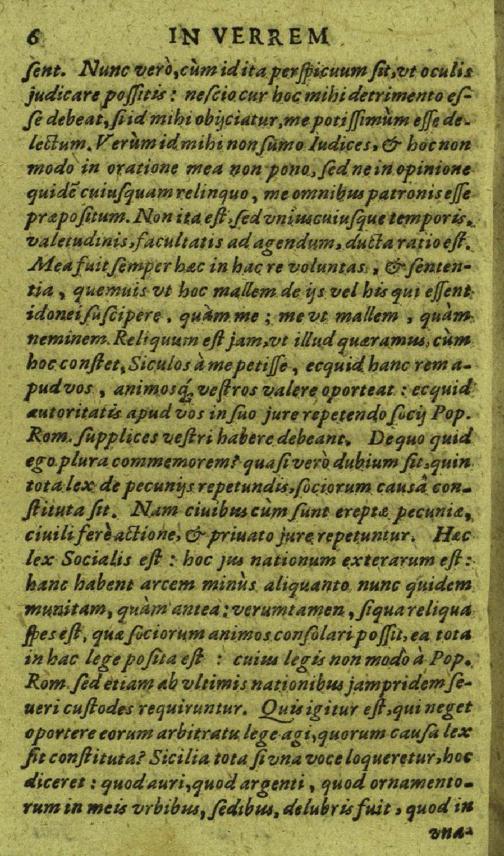 6 IN VERREM
sent. Nunc verò, cùm id ita perspicuum sit, vt oculis
judicare possitis: nescio cur hoc mihi detrimento es-
se debeat, si id mihi obijciatur, me potissimùm esse de-
lectum. Verùm id mihi non sumo Iudices, & hoc non
modo in oratione mea non pono, sed ne in opinione
quidẽ cuiusquam relinquo, me omnibus patronis esse
præpositum. Non ita est, sed vniuscuiusque temporis,
valetudinis, facultatis ad agendum, ducta ratio est.
Mea fuit semper hæc in hac re voluntas, & senten-
tia, quemuis vt hoc mallem de ijs vel his qui essent
idonei suscipere, quàm me; me vt mallem, quàm
neminem. Reliquum est jam, vt illud quæramus, cùm
hoc constet, Siculos à me petisse, ecquid hanc rem a-
pud vos, animosq́ vestros valere oporteat: ecquid
autoritatis apud vos in suo jure repetendo socij Pop.
Rom. supplices vestri habere debeant. De quo quid
ego plura commemorem? quasi verò dubium sit, quin
tota lex de pecunijs repetundis, sociorum causâ con-
stituta sit. Nam ciuibus cùm sunt ereptæ pecuniæ,
ciuili ferè actione, & priuato jure repetuntur. Hæc
lex Socialis est: hoc jus nationum exterarum est:
hanc habent arcem minùs aliquanto nunc quidem
munitam, quàm antea; verumtamen, si qua reliqua
spes est, quæ sociorum animos consolari possit, ea tota
in hac lege posita est: cuius legis non modò à Pop.
Rom. sed etiam ab vltimis nationibus jampridem se-
ueri custodes requiruntur. Quis igitur est, qui neget
oportere eorum arbitratu lege agi, quorum causa lex
sit constituta? Sicilia tota si vna voce loqueretur, hoc
diceret: quod auri, quod argenti, quod ornamento-
rum in meis vrbibus, sedibus, delubris fuit, quod in
vna-